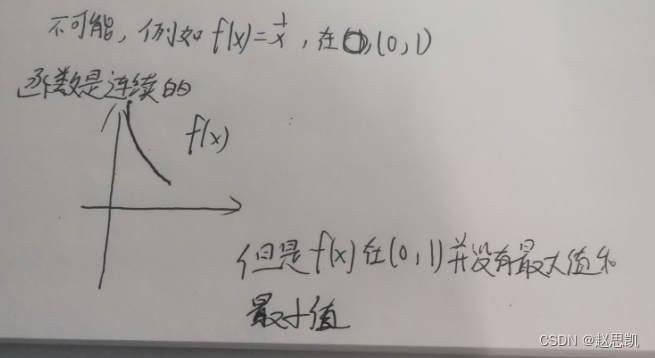 不可能，例如 f(x)=1/x，在(0,1)
函数是连续的
f(x)
但是 f(x)在(0,1)并没有最大值和
最小值
CSDN @赵思凯